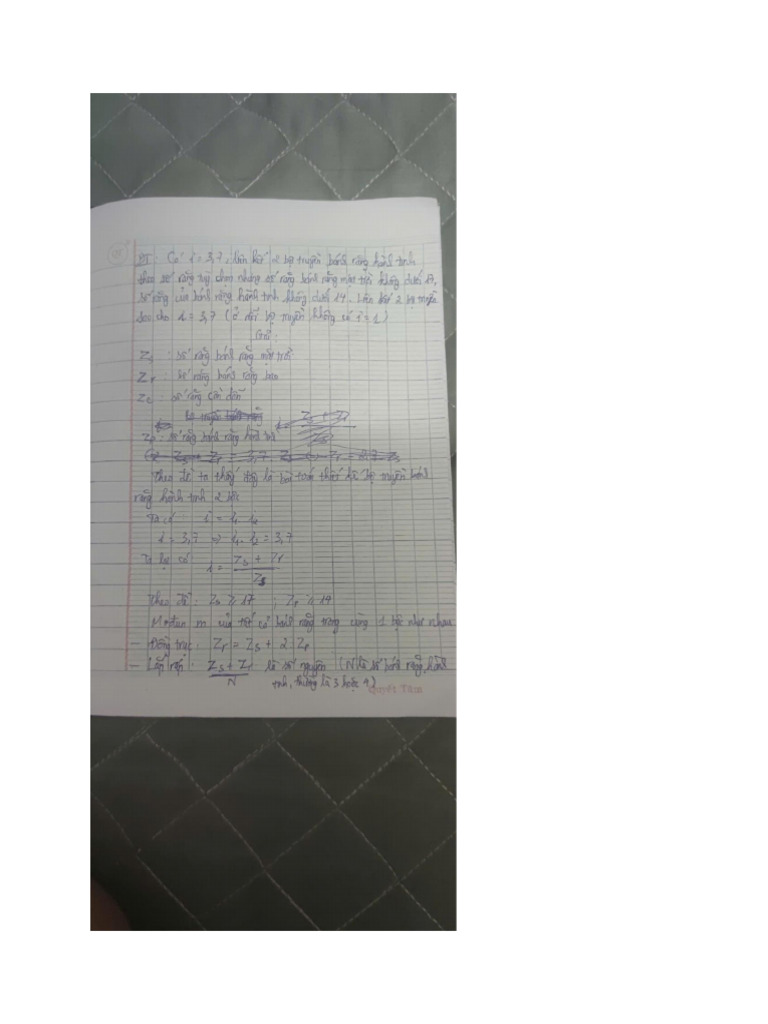 ĐT: Có i = 3,7, liên kết 2 bộ truyền bánh răng hành tinh
theo số răng tuỳ chọn nhưng số răng bánh răng mặt trời không dưới 17,
số răng của bánh răng hành tinh không dưới 14. Liên kết 2 bộ truyền
sao cho i = 3,7 (ở đổi bộ truyền không có i = 1)
Giải
Zs : số răng bánh răng mặt trời
Zr : số răng bánh răng bao
Zc : số răng cần dẫn
Zp : số răng bánh răng hành tinh
Theo đề ta thấy đây là bài toán thiết kế bộ truyền bánh
răng hành tinh 2 bậc
Ta có : i = i1 . i2
i = 3,7 => i1 . i2 = 3,7
Ta lại có i = Zs + Zr / Zs
Theo đề : Zs ≥ 17 ; Zp ≥ 14
Modun m của tất cả bánh răng trong cùng 1 bậc như nhau
- Đồng trục : Zr = Zs + 2 . Zp
- Lắp ráp : Zs + Zr / N là số nguyên (N là số bánh răng hành
tinh, thường là 3 hoặc 4)